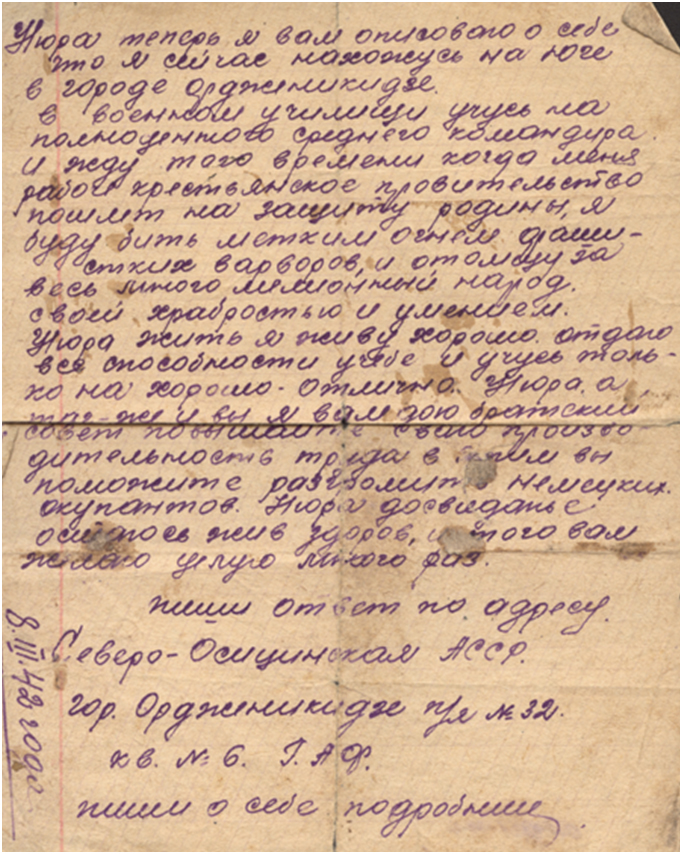 Нюра теперь я вам описоваю о себе
что я сейчас нахожусь на юге
в городе Орджиникидзе.
в военном училищи учусь на
полноценного среднего командира.
и жду того времени когда меня
рабоч крестьянское провительство
пошлет на защиту родины, я
буду бить метким огнем фаши-
стких варворов, и отомщу за
весь много мелионный народ.
своей храбростью и умением.
Нюра жить я живу хорошо. отдаю
все способности учебе и учусь толь-
ко на хорошо - отлично. Нюра. а
так-же и вы я вам даю братский
совет повышайте свою произво
дительность труда в вы
поможите разгромить немецких.
окупантов. Нюра досвиданье
остаюсь жив здоров, и того вам
желаю целую много раз.
пиши ответ по адресу.
Северо-Осицинская АССР.
гор. Орджиникидзе п/я № 32.
кв. № 6. Г. А Ф.
пиши о себе подробнии
8.III.42 года